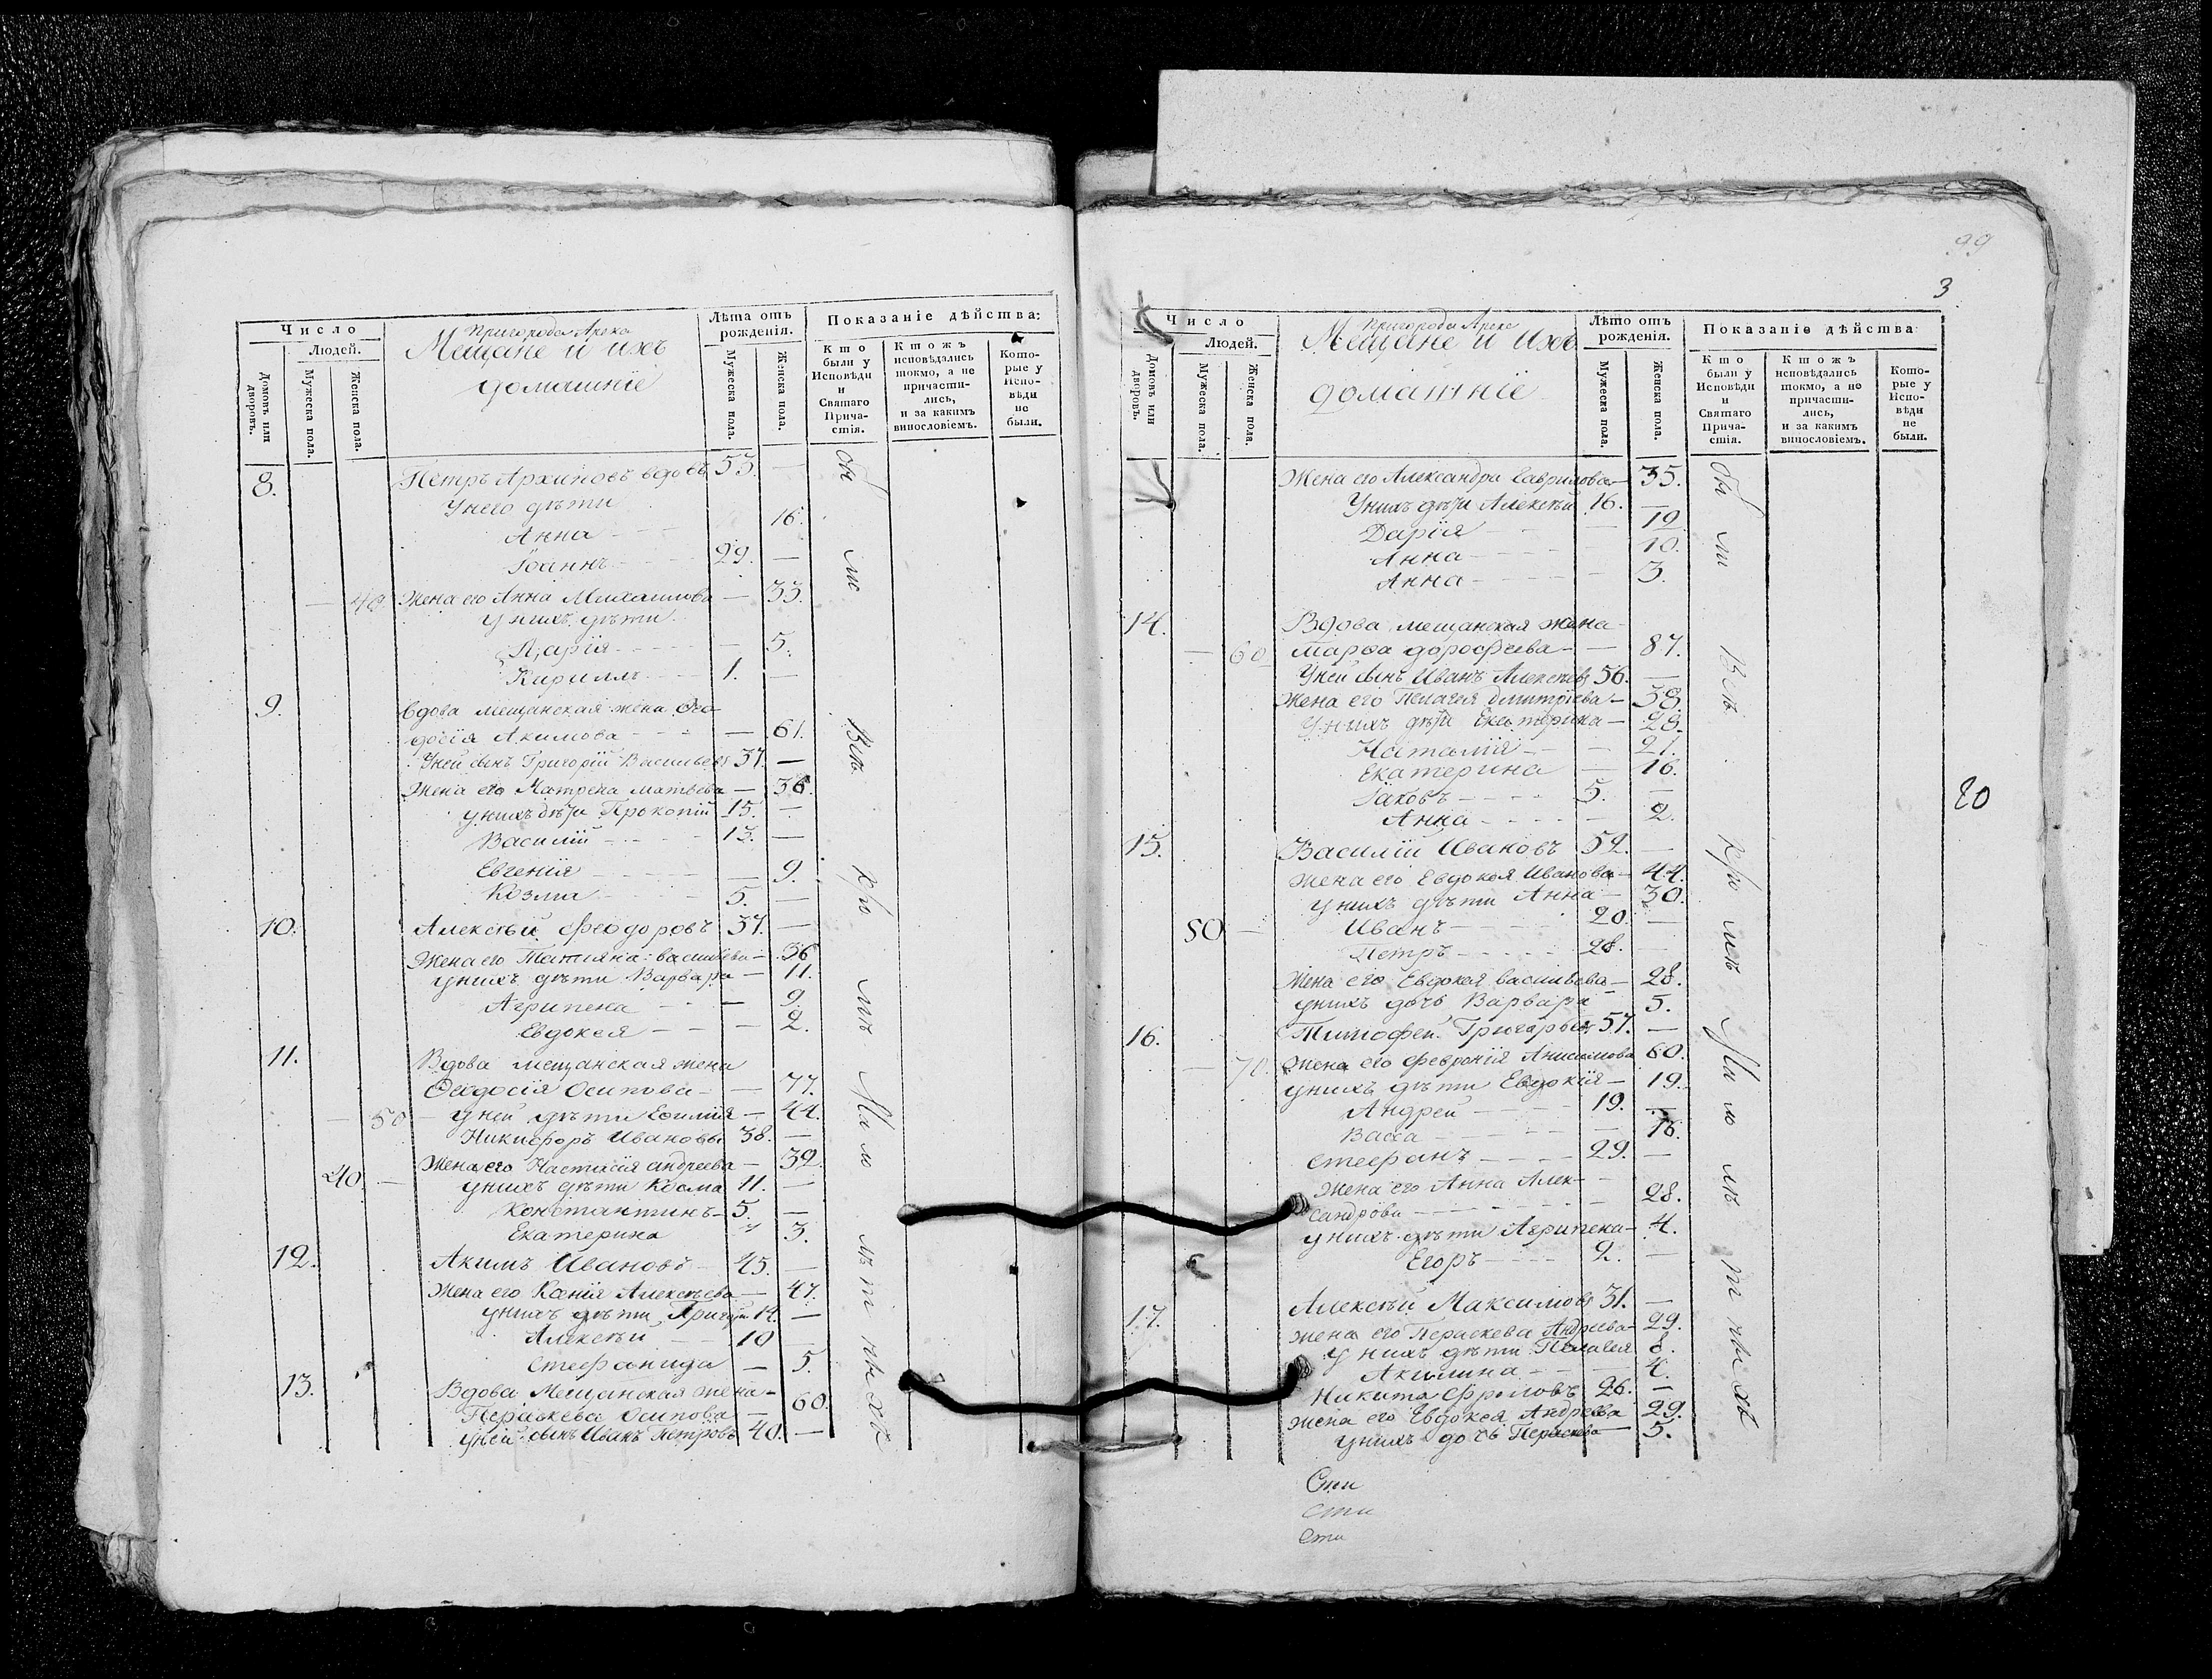 Число
Людей.
Домовъ или дворовъ.
Мужеска пола.
Женска пола.
Пригорода Арска
Мещане и ихъ
домашніе
Лѣта отъ рожденія.
Мужеска пола.
Женска пола.
Показаніе дѣйства:
Кто были у Исповѣди и Святаго Причастія.
Ктожъ исповѣдались токмо, а не причастились, и за какимъ винословіемъ.
Которые у Исповѣди не были.
8. Петръ Архиповъ вдовъ 53. —
У него дѣти
Анна 16.
Іоаннъ 29. —
— 40. Жена его Анна Михаилова — 33.
У нихъ дѣти
Дарія — 5.
Кириллъ 1. —
9. Вдова мещанская жена Ѳео-
досія Акимова — 61.
У ней сынъ Григорій Васильевъ 37. —
Жена его Матрена Матвѣева — 36.
у нихъ дѣти Прокопій 15. —
Василій 13. —
Евгенія — 9.
Козма 5. —
10. Алексѣй Феодоровъ 37. —
Жена его Татиана Васильева — 36
у нихъ дѣти Варвара — 11.
Агрипена — 9.
Евдокея — 2.
11. Вдова мещанская жена
Ѳеодосія Осипова — 77.
— 50 — у ней дѣти Евимія — 44.
Никифоръ Ивановы 38. —
Жена его Настасія Андреева — 32
40. — у нихъ дѣти Косма 11. —
Константинъ 5. —
Екатерина 3.
12. Акимъ Ивановъ 45. —
Жена его Ксенія Алексѣева — 47.
у нихъ дѣти Григорій 14. —
Алексѣй 10 —
Стефанида — 5.
13. Вдова Мещанская жена
Параскева Осипова — 60.
у ней сынъ Иванъ Петровъ 40. —
99
3
Число
Людей.
Домовъ или дворовъ.
Мужеска пола.
Женска пола.
Пригорода Арска
Мещане и ихъ
домашніе
Лѣто отъ рожденія.
Мужеска пола.
Женска пола.
Показаніе дѣйства:
Кто были у Исповѣди и Святаго Причастія.
Ктожъ исповѣдались токмо, а не причастились, и за какимъ винословіемъ.
Которые у Исповѣди не были.
Жена его Александра Гаврилова — 35.
У нихъ дѣти Алексѣй 16. —
Дарія — 19.
Анна — 10.
Анна — 3.
14. Вдова мещанская жена
— 60 Марѳа Дорофеева — 87.
У ней сынъ Иванъ Алексѣевъ 56. —
Жена его Пелагея Дмитріева — 38.
У нихъ дѣти Екатерина — 23.
Наталія — 21.
Екатерина — 16.
Іаковъ 5. —
Анна — 2.
20
15. Василій Ивановъ 52. —
Жена его Евдокея Иванова — 44.
у нихъ дѣти Анна — 30.
50 — Иванъ 20. —
Петръ 28. —
Жена его Евдокея Васильева — 28.
у нихъ дочь Варвара — 5.
16. Тимофей Григорьевъ 57. —
— 70. Жена его Февронія Анисимова 60.
у нихъ дѣти Евдокія — 19.
Андрей 19. —
Васса — 16.
Стефанъ 29. —
Жена его Анна Алек-
сандрова — 28.
у нихъ дѣти Агрипена — 4.
Егоръ 2. —
17. Алексѣй Максимовъ 31. —
Жена его Параскева Андреева — 29.
у нихъ дѣти Пелагея 8.
Акилина — 4.
Никита Фроловъ 26. —
Жена его Евдокея Андреева 29.
у нихъ дочь Параскева — 5.
Сти
Сти
Сти